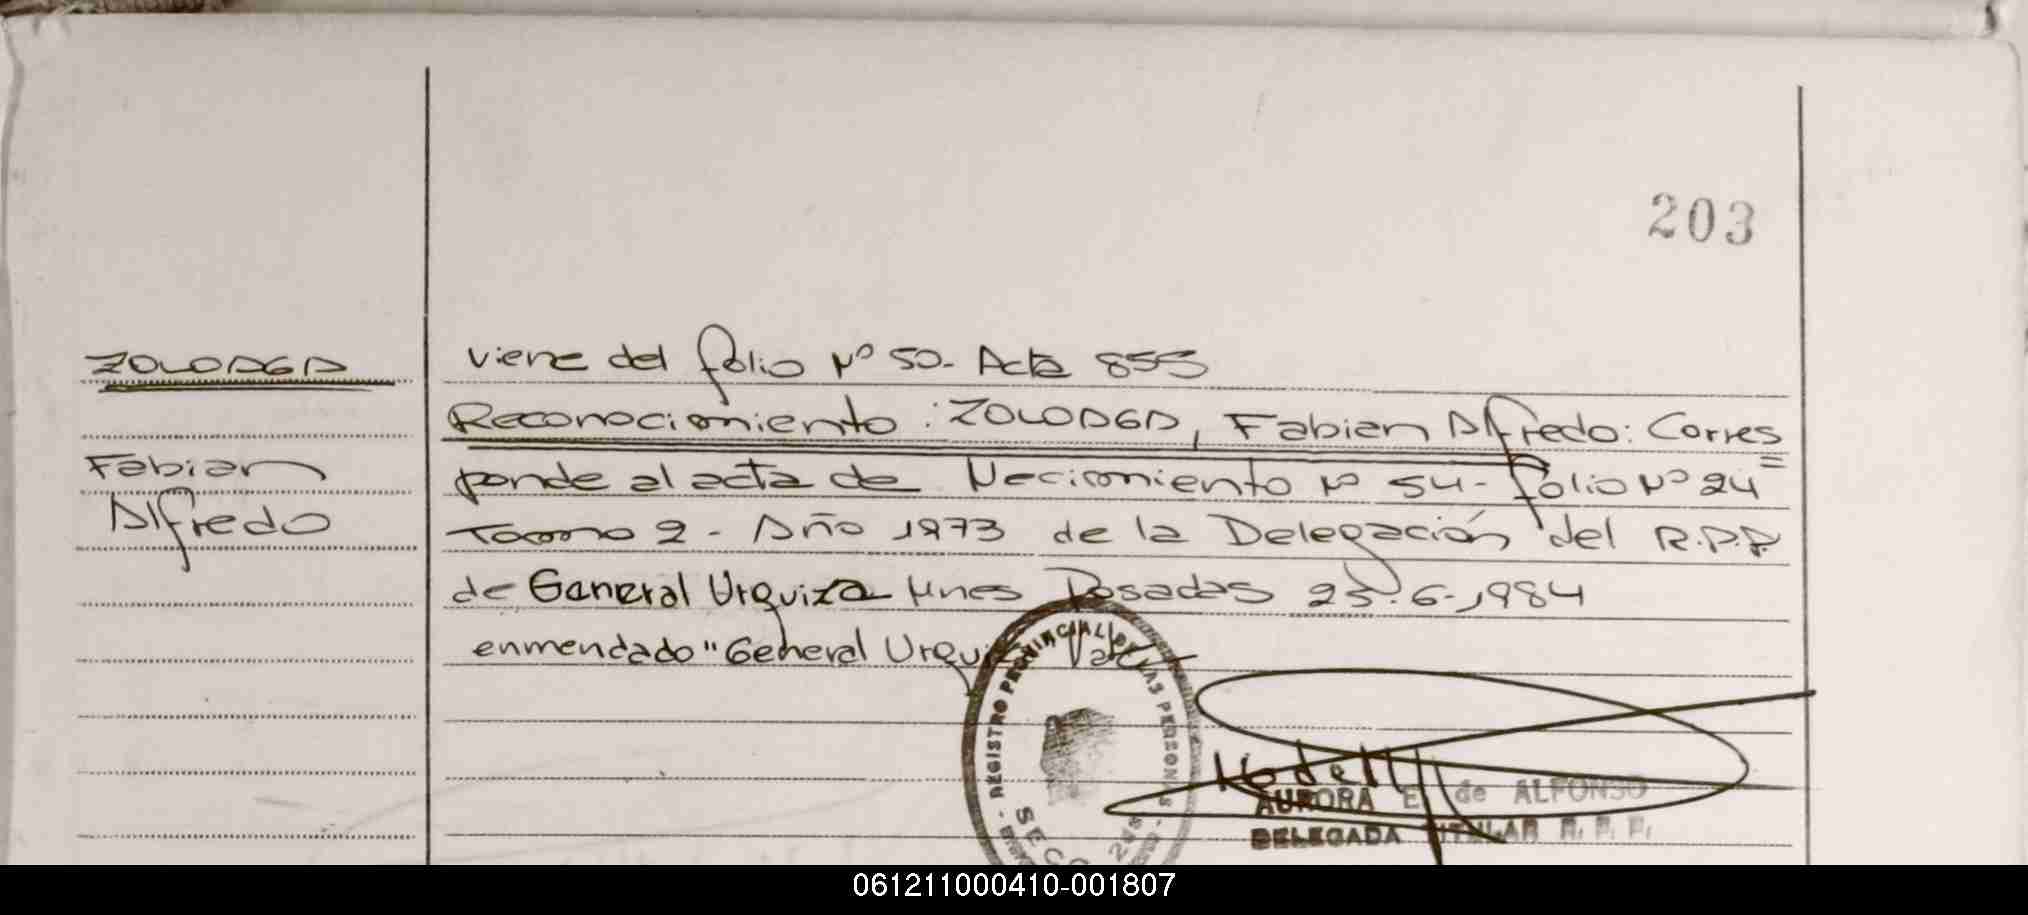 203
ZOLOAGA
Fabian
Alfredo
viene del folio Nº 50- Acta 855
Reconocimiento: ZOLOAGA, Fabian Alfredo: Corres
ponde al acta de Nacimiento Nº 54- folio Nº 24
Tomo 2 - Año 1973 de la Delegación del R.P.P.
de General Urquiza Mnes Posadas 25-6-1984
enmendado "General Urqui
REGISTRO PROVINCIAL DE LAS PERSONAS
AURORA E. de ALFONSO
DELEGADA TITULAR R. P. P.
061211000410-001807